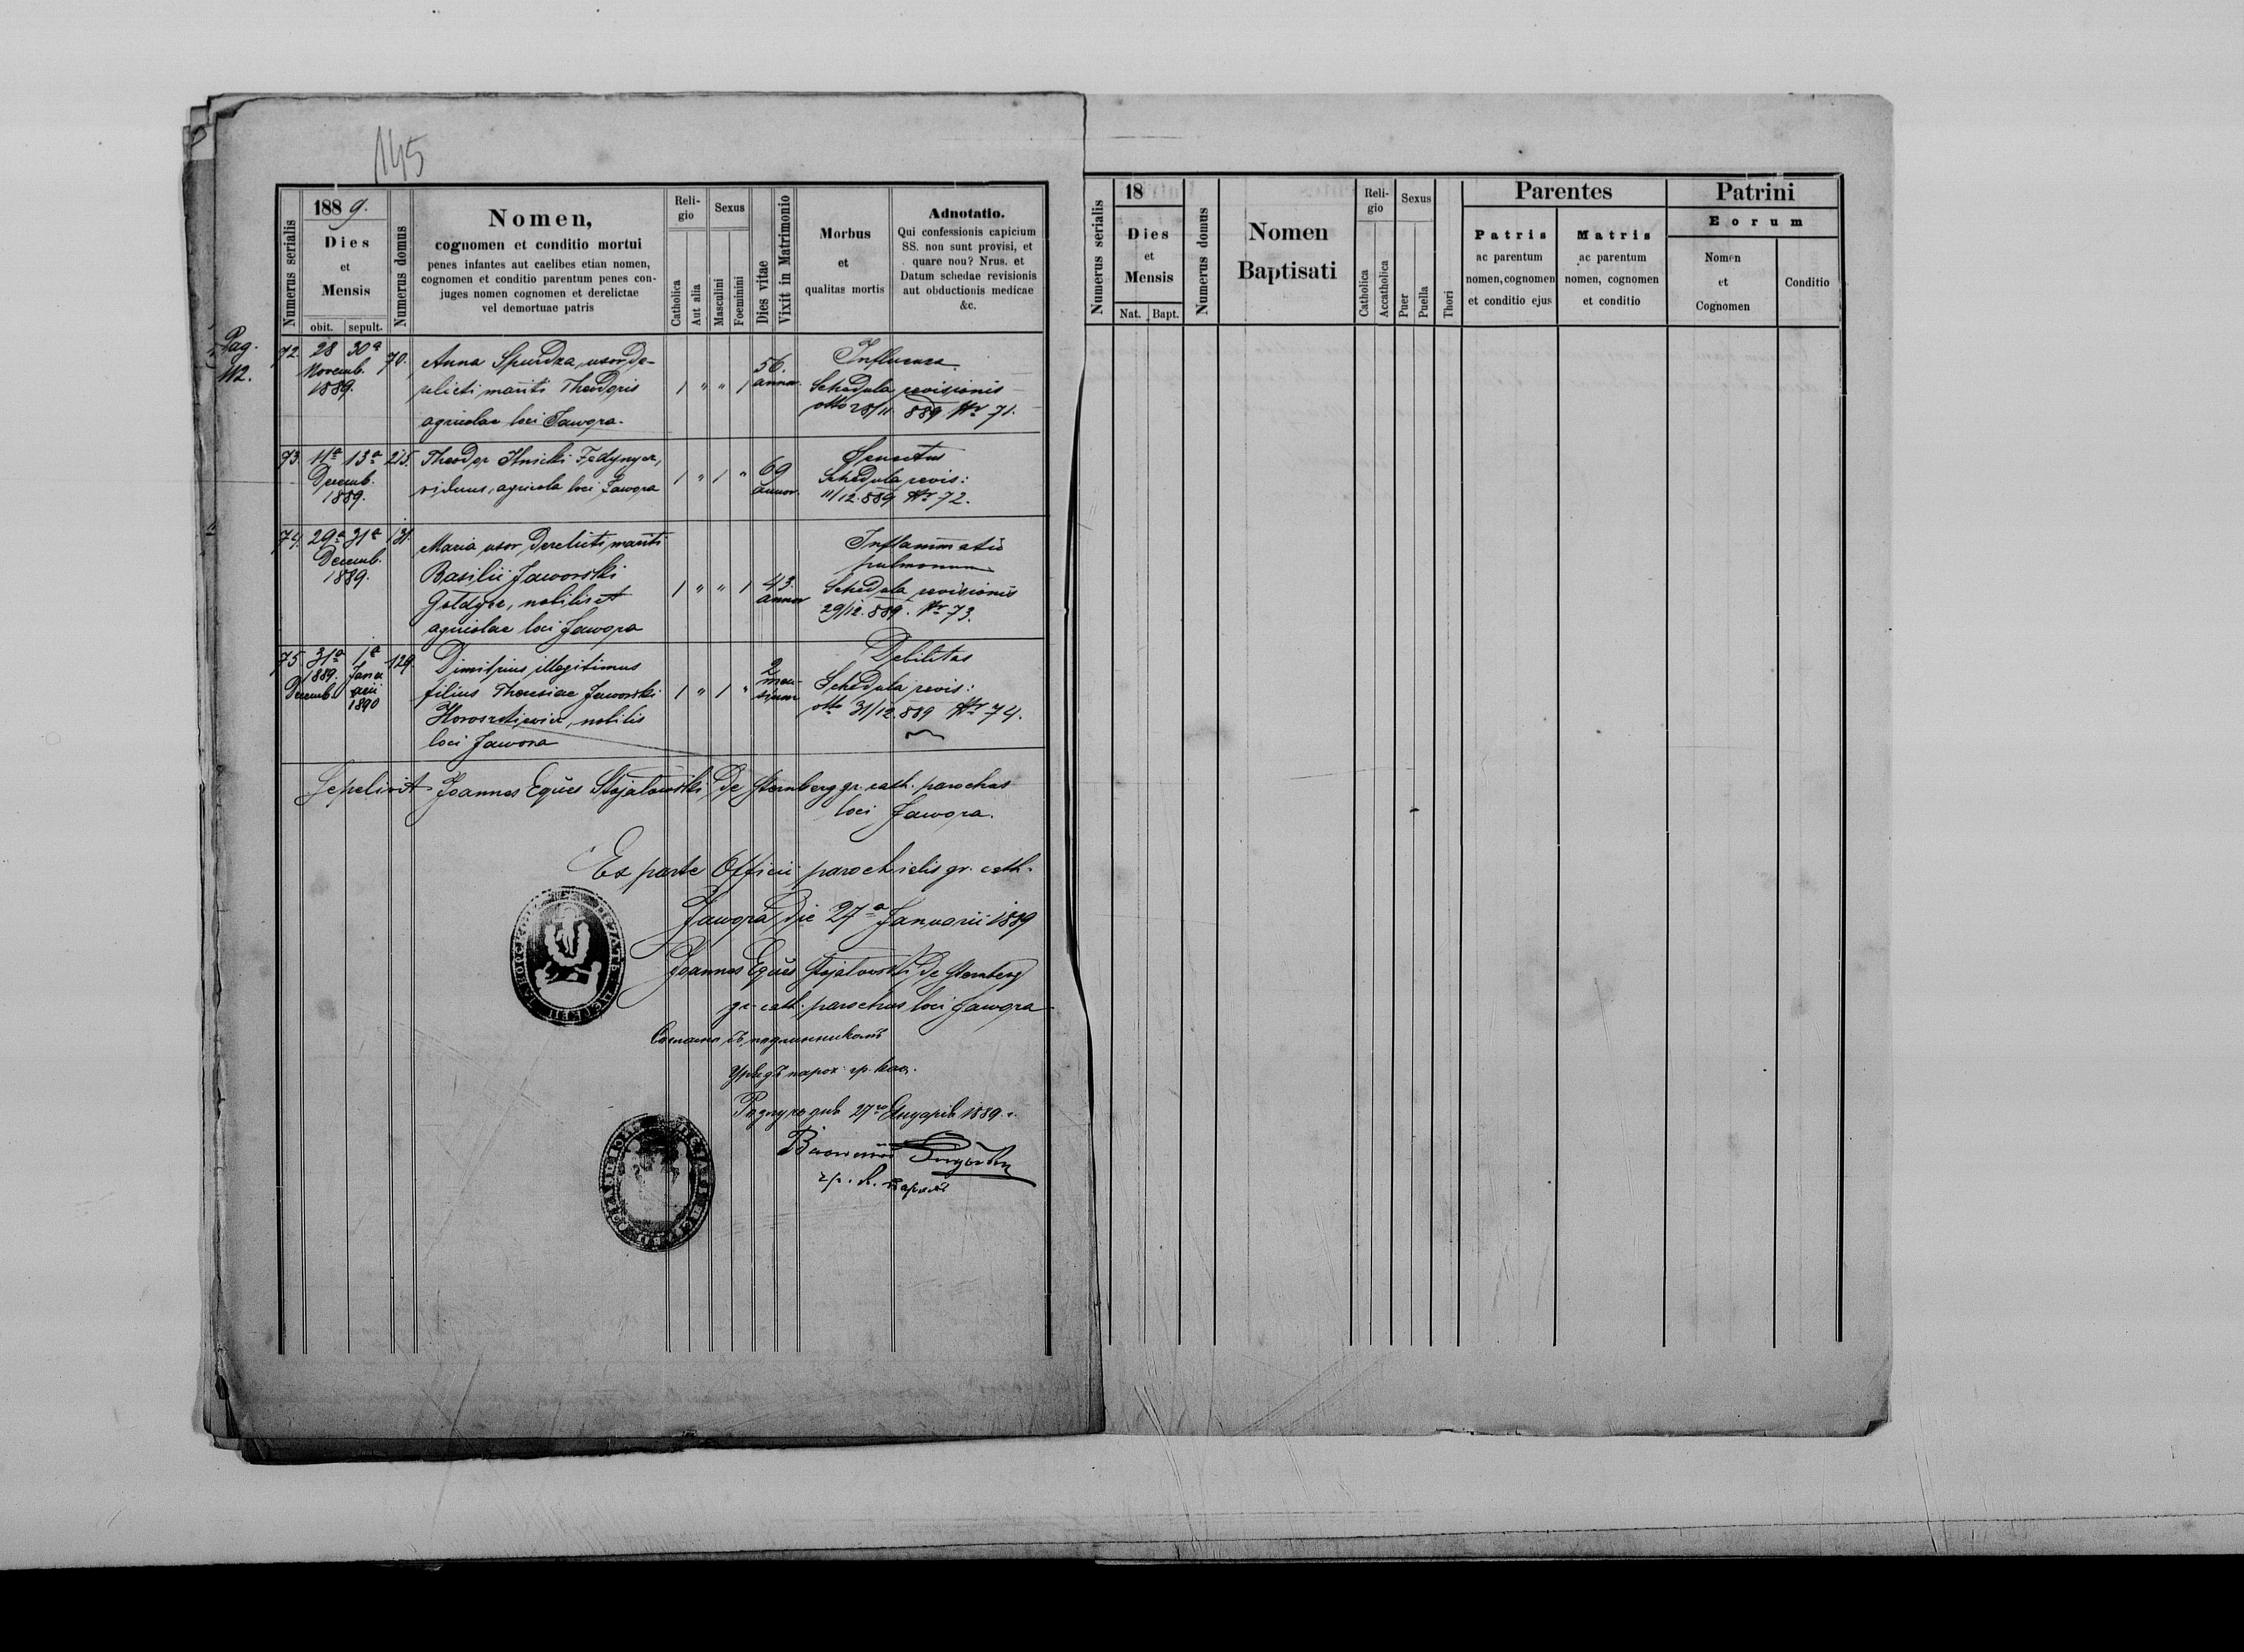 145
Pag.
112.
Numerus serialis
1889.
Dies
et
Mensis
obit. sepult.
Numerus domus
Nomen,
cognomen et conditio mortui
penes infantes aut caelibes etian nomen,
cognomen et conditio parentum penes con-
juges nomen cognomen et derelictae
vel demortuae patris
Reli-
gio
Catholica
Aut alia
Sexus
Masculini
Foeminini
Dies vitae
Vixit in Matrimonio
Morbus
et
qualitas mortis
Adnotatio.
Qui confessionis capicium
SS. non sunt provisi, et
quare nou? Nrus. et
Datum schedae revisionis
aut obductionis medicae
&c.
72. 28 30a Novemb. 1889. 70.
Anna Spurdza, uxor de-
relicti mariti Theodoris
agricolae loci Jawora.
1 " " 1 56. annor.
Influenza
Schedula revisionis
dtto 28/11 889 Nr 71.
73. 11a 13a Decemb. 1889. 215.
Theodor Ilnicki Fedynycz,
viduus, agricola loci Jawora
1 " 1 " 69 annor.
Senectus
Schedula revis:
11/12. 889 Nr 72.
74. 29a 31a Decemb. 1889. 131.
Maria uxor derelicti mariti
Basilii Jaworski
nobilis et
agricolae loci Jawora
1 " " 1 43. annor
Inflammatio
pulmonum
Schedula revisionis
29/12. 889. Nr 73.
75 31a 1889. Decemb. 1a Janu arii 1890 129.
Dimitrius illegitimus
filius Theresiae Jaworski
nobilis
loci Jawora
1 " 1 " 2 men- sium
Debilitas
Schedula revis:
dtto 31/12. 889 Nr 74.
Sepelivit Joannes Eques Stojalowski de Sternberg gr. cath. parochus
loci Jawora.
Ex parte Officii parochialis gr. cath.
Jawora die 27a Januarii 1889
Joannes Eques Stojalowski de Sternberg
gr. cath. parochus loci Jawora
Согласно съ подлинникомъ
Урядъ парох. гр. кат.
27го 1889.
Numerus serialis
18
Dies
et
Mensis
Nat. Bapt.
Numerus domus
Nomen
Baptisati
Reli-
gio
Catholica
Accatholica
Sexus
Puer
Puella
Thori
Parentes
Patris
ac parentum
nomen, cognomen
et conditio ejus
Matris
ac parentum
nomen, cognomen
et conditio
Patrini
Eorum
Nomen
et
Cognomen
Conditio